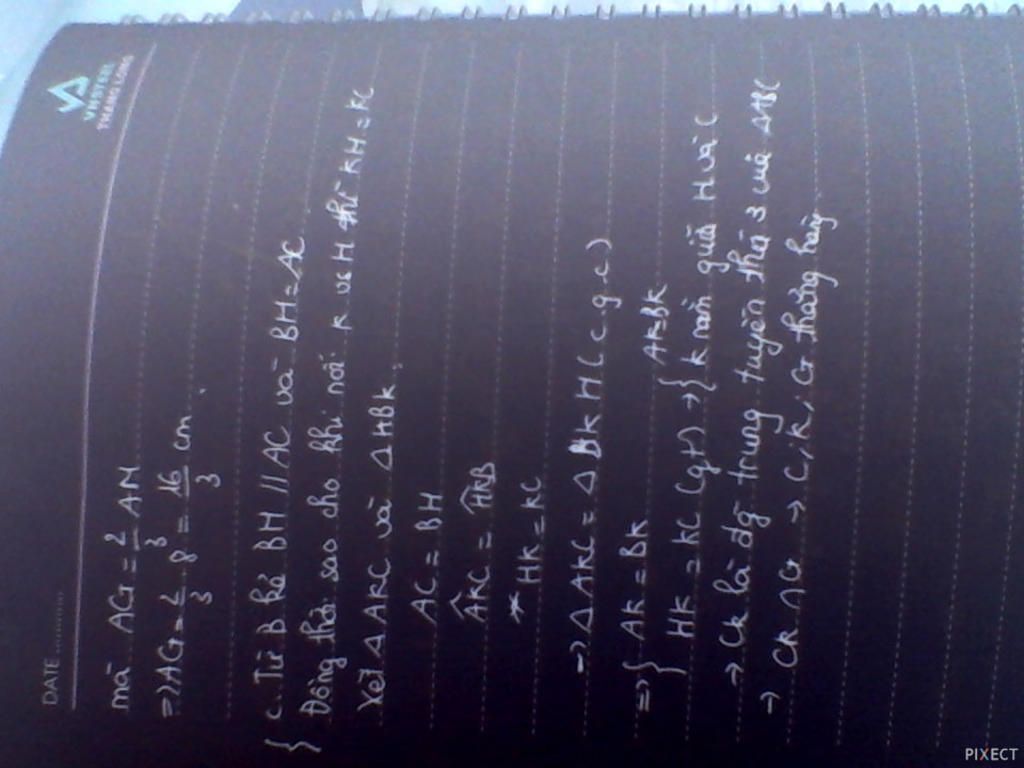 VNSTEEL
THANG LONG
DATE
mà AG = 2/3 AM
=> AG = 2/3 . 8 = 16/3 cm .
{ c. Từ B kẻ BH // AC và BH = AC
Đồng thời sao cho khi nối K và H thì KH = KC
Xét △AKC và △HBK .
AC = BH
AKC = HKB
* HK = KC
-> △AKC = △BKH (c.g.c)
=> { AK = BK AK=BK
HK = KC (gt) -> { K nằm giữa H và C
-> CK là đg trung tuyến thứ 3 của △ABC
-> CK ∩ G -> C, K, G thẳng hàng
PIXECT